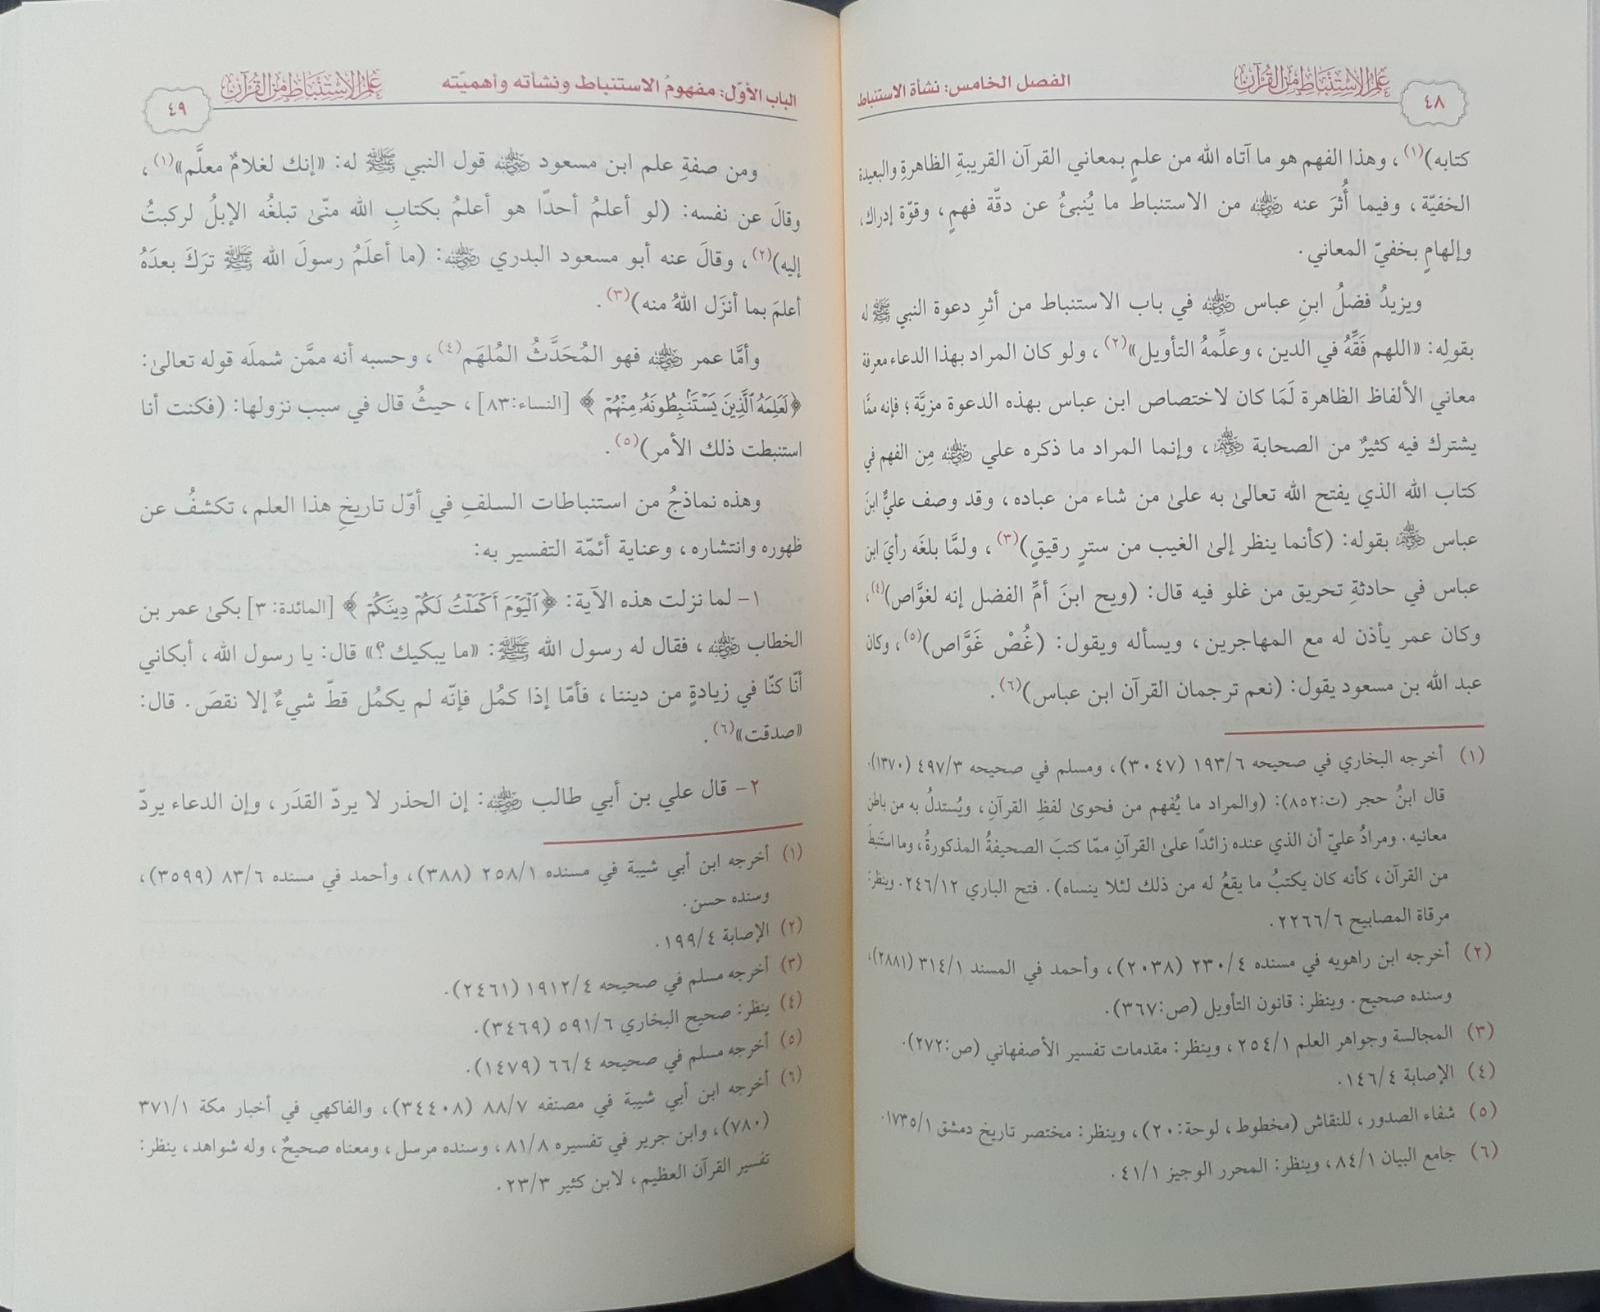 ٤٨
علم الاستنباط من القرآن
الفصل الخامس: نشأة الاستنباط
كتابه)(١)، وهذا الفهم هو ما آتاه الله من علمٍ بمعاني القرآن القريبةِ الظاهرةِ والبعيدة
الخفيّة، وفيما أُثرَ عنه رضي الله عنه من الاستنباط ما يُنبئُ عن دقّة فهمٍ، وقوّة إدراك،
وإلهامٍ بخفيّ المعاني.
ويزيدُ فضلُ ابنِ عباس رضي الله عنه في باب الاستنباط من أثرِ دعوة النبي ﷺ له
بقولِه: «اللهم فَقِّهْهُ في الدين، وعلِّمهُ التأويل»(٢)، ولو كان المراد بهذا الدعاء معرفة
معاني الألفاظ الظاهرة لَمَا كان لاختصاص ابن عباس بهذه الدعوة مزيَّة؛ فإنه ممَّا
يشترك فيه كثيرٌ من الصحابة رضي الله عنهم، وإنما المراد ما ذكره علي رضي الله عنه مِن الفهم في
كتاب الله الذي يفتح الله تعالىٰ به علىٰ من شاء من عباده، وقد وصف عليٌّ ابنَ
عباس رضي الله عنهم بقوله: (كأنما ينظر إلىٰ الغيب من سترٍ رقيقٍ)(٣)، ولمَّا بلغَه رأيَ ابن
عباس في حادثةِ تحريق من غلو فيه قال: (ويح ابنَ أمِّ الفضل إنه لغوَّاص)(٤)،
وكان عمر يأذن له مع المهاجرين، ويسأله ويقول: (غُصْ غَوَّاص)(٥)، وكان
عبد الله بن مسعود يقول: (نعم ترجمان القرآن ابن عباس)(٦).
(١) أخرجه البخاري في صحيحه ١٩٣/٦ (٣٠٤٧)، ومسلم في صحيحه ٤٩٧/٣ (١٣٧٠).
قال ابنُ حجر (ت:٨٥٢): (والمراد ما يُفهم من فحوىٰ لفظِ القرآنِ، ويُستدلُ به من باطن
معانيه. ومرادُ عليّ أن الذي عنده زائدًا علىٰ القرآنِ ممّا كتبَ الصحيفةُ المذكورةُ، وما استَنبطَ
من القرآن، كأنه كان يكتبُ ما يقعُ له من ذلك لئلا ينساه). فتح الباري ٢٤٦/١٢. وينظر:
مرقاة المصابيح ٢٢٦٦/٦.
(٢) أخرجه ابن راهويه في مسنده ٢٣٠/٤ (٢٠٣٨)، وأحمد في المسند ٣١٤/١ (٢٨٨١)،
وسنده صحيح. وينظر: قانون التأويل (ص:٣٦٧).
(٣) المجالسة وجواهر العلم ٢٥٤/١، وينظر: مقدمات تفسير الأصفهاني (ص:٢٧٢).
(٤) الإصابة ١٤٦/٤.
(٥) شفاء الصدور، للنقاش (مخطوط، لوحة:٢٠)، وينظر: مختصر تاريخ دمشق ١٧٣٥/١.
(٦) جامع البيان ٨٤/١، وينظر: المحرر الوجيز ٤١/١.
الباب الأوّل: مفهومُ الاستنباط ونشأته وأهميّته
علم الاستنباط من القرآن
٤٩
ومن صفةِ علم ابن مسعود رضي الله عنه قول النبي ﷺ له: «إنك لغلامٌ معلَّم»(١)،
وقالَ عن نفسه: (لو أعلمُ أحدًا هو أعلمُ بكتابِ الله منّىٰ تبلغُه الإبلُ لركبتُ
إليه)(٢)، وقالَ عنه أبو مسعود البدري رضي الله عنه: (ما أعلَمُ رسولَ الله ﷺ تركَ بعدَهُ
أعلمَ بما أنزَل اللهُ منه)(٣).
وأمَّا عمر رضي الله عنه فهو المُحَدَّثُ المُلهَم(٤)، وحسبه أنه ممَّن شملَه قوله تعالىٰ:
﴿لَعَلِمَهُ ٱلَّذِينَ يَسْتَنۢبِطُونَهُۥ مِنْهُمْ﴾ [النساء:٨٣]، حيثُ قال في سبب نزولها: (فكنت أنا
استنبطت ذلك الأمر)(٥).
وهذه نماذجُ من استنباطات السلفِ في أوّل تاريخِ هذا العلم، تكشفُ عن
ظهوره وانتشاره، وعناية أئمّة التفسير به:
١- لما نزلت هذه الآية: ﴿ٱلْيَوْمَ أَكْمَلْتُ لَكُمْ دِينَكُمْ﴾ [المائدة: ٣] بكىٰ عمر بن
الخطاب رضي الله عنه، فقال له رسول الله ﷺ: «ما يبكيك؟» قال: يا رسول الله، أبكاني
أنّا كنّا في زيادةٍ من ديننا، فأمّا إذا كمُل فإنّه لم يكمُل قطّ شيءٌ إلا نقصَ. قال:
«صدقت»(٦).
٢- قال علي بن أبي طالب رضي الله عنه: إن الحذر لا يردّ القدَر، وإن الدعاء يردّ
(١) أخرجه ابن أبي شيبة في مسنده ٢٥٨/١ (٣٨٨)، وأحمد في مسنده ٨٣/٦ (٣٥٩٩)،
وسنده حسن.
(٢) الإصابة ١٩٩/٤.
(٣) أخرجه مسلم في صحيحه ١٩١٢/٤ (٢٤٦١).
(٤) ينظر: صحيح البخاري ٥٩١/٦ (٣٤٦٩).
(٥) أخرجه مسلم في صحيحه ٦٦/٤ (١٤٧٩).
(٦) أخرجه ابن أبي شيبة في مصنفه ٨٨/٧ (٣٤٤٠٨)، والفاكهي في أخبار مكة ٣٧١/١
(٧٨٠)، وابن جرير في تفسيره ٨١/٨، وسنده مرسل، ومعناه صحيحٌ، وله شواهد، ينظر:
تفسير القرآن العظيم، لابن كثير ٢٣/٣.